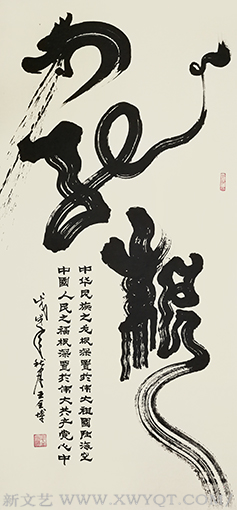 龙根
中华民族之龙根深置於伟大祖國陆海空
中國人民之福根深置於伟大共产党心中
新文艺 - WWW.XWYQT.COM